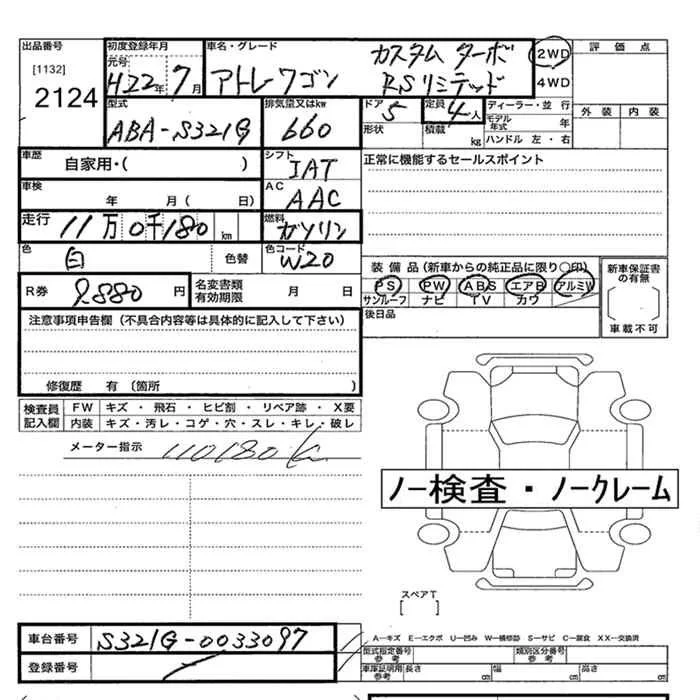 出品番号 初度登録年月 車名・グレード カスタム ターボ 2WD 評価点
[1132] 元号 H22年 7月 アトレワゴン RSリミテッド 4WD
2124
型式 排気量又はkw ドア 5 定員 4人 ディーラー・並行 外装 内装
ABA-S321G 660 形状 積載 kg モデル年式 年
ハンドル 左・右
車歴 自家用・( ) シフト IAT 正常に機能するセールスポイント
車検 年 月( 日) AC AAC
走行 11万0千180km 燃料 ガソリン
色 白 色替 色コード W20 装備品(新車からの純正品に限り○印) 新車保証書の有無
R券 9880円 名変書類有効期限 月 日 PS PW ABS エアB アルミW
サンルーフ ナビ TV カワ
注意事項申告欄(不具合内容等は具体的に記入して下さい) 後日品 車載不可
修復歴 有(箇所 )
検査員記入欄 FW キズ・飛石・ヒビ割・リペア跡・X要
内装 キズ・汚レ・コゲ・穴・スレ・キレ・破レ
メーター指示 110180K
ノー検査・ノークレーム
スペアT
[ ]
車台番号 S321G-0033097 A―キズ E―エクボ U―凹み W―補修跡 S―サビ C―腐食 XX―交換済
型式指定番号 参考 類別区分番号 参考
登録番号 車庫証明用 参考 長さ cm 幅 cm 高さ cm